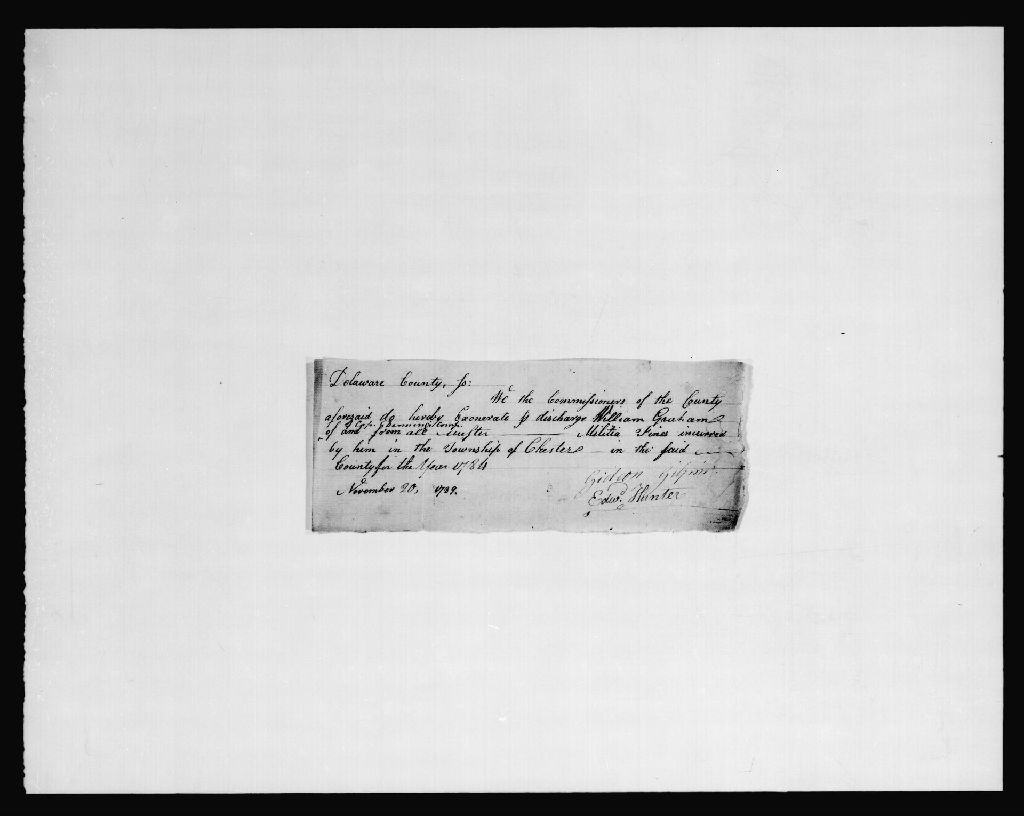 Delaware County, ss:
We the Commissioners of the County
aforesaid do hereby Exonerate & discharge William Graham
of Cpt. Comp.
of and from all Muster Militia Fines incurred
by him in the Township of Chester — in the said
County for the Year 1784
November 20, 1789.
Gideon Gilpin
Edwd. Hunter